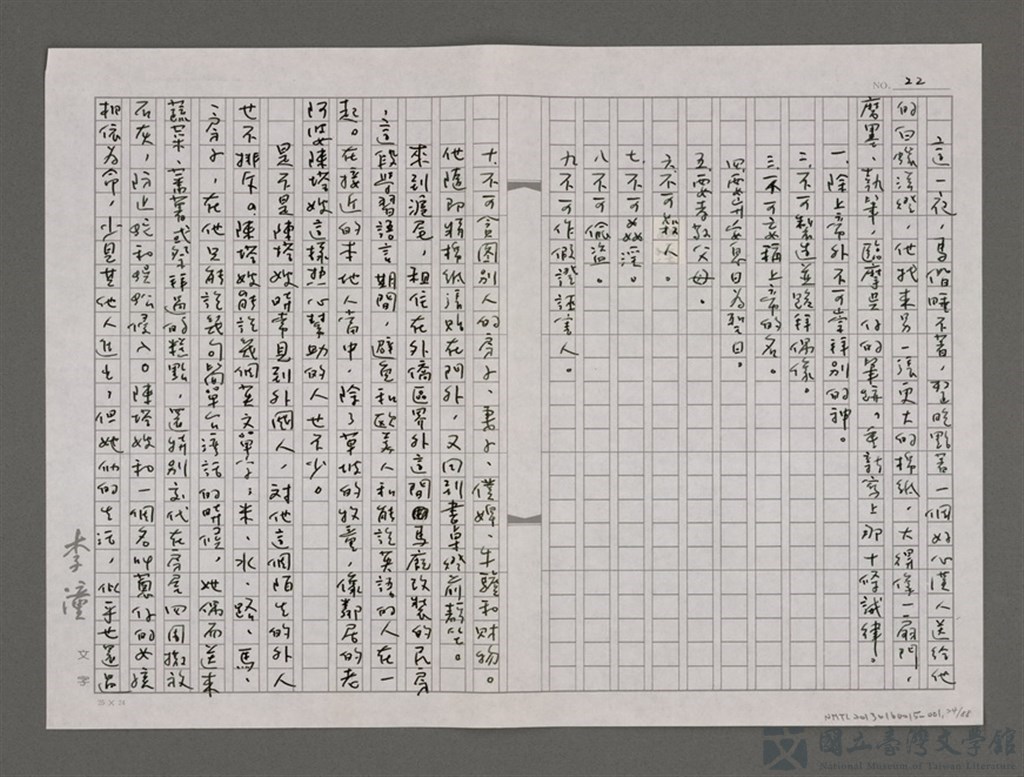 NO. 22
這一夜，馬偕睡不著，整晚點著一個好心漢人送給他
的白蠟洋燈，他找來另一張更大的棉紙，大得像一扇門，
磨墨、執筆，臨摹吳仔的筆跡，重新寫上那十條誡律。
一、除上帝外不可崇拜別的神。
二、不可製造並跪拜偶像。
三、不可妄稱上帝的名。
四、要守安息日為聖日。
五、要孝敬父母。
六、不可殺人。
七、不可姦淫。
八、不可偷盜。
九、不可作假證誣害人。
十、不可貪圖別人的房子、妻子、僕婢、牛驢和財物。
他隨即將棉紙張貼在門外，又回到書桌燈前靜坐。
來到滬尾，租住在外僑區界外這間由馬廄改裝的民房
，這段學習語言期間，避免和歐美人和能說英語的人在一
起。在接近的本地人當中，除了草坡的牧童，像鄰居的老
阿婆陳塔嫂這樣熱心幫助的人也不少。
是不是陳塔嫂時常見到外國人，對他這個陌生的外人
也不排斥。陳塔嫂能說幾個英文單字；米、水、路、馬、
房子，在他只能說幾句簡單台灣話的時候，她偶而送來
蔬菜、蒸著或祭拜過的糕點，還特別交代在房屋四周撒放
石灰，防止蛇和蜈蚣侵入。陳塔嫂和一個名叫蔥仔的女孩
相依為命，少見其他人進出，但她們的生活，似乎也還過
李潼
文字
25 × 24
NMTL20130160015-001, 24/88
國立臺灣文學館
National Museum of Taiwan Literature